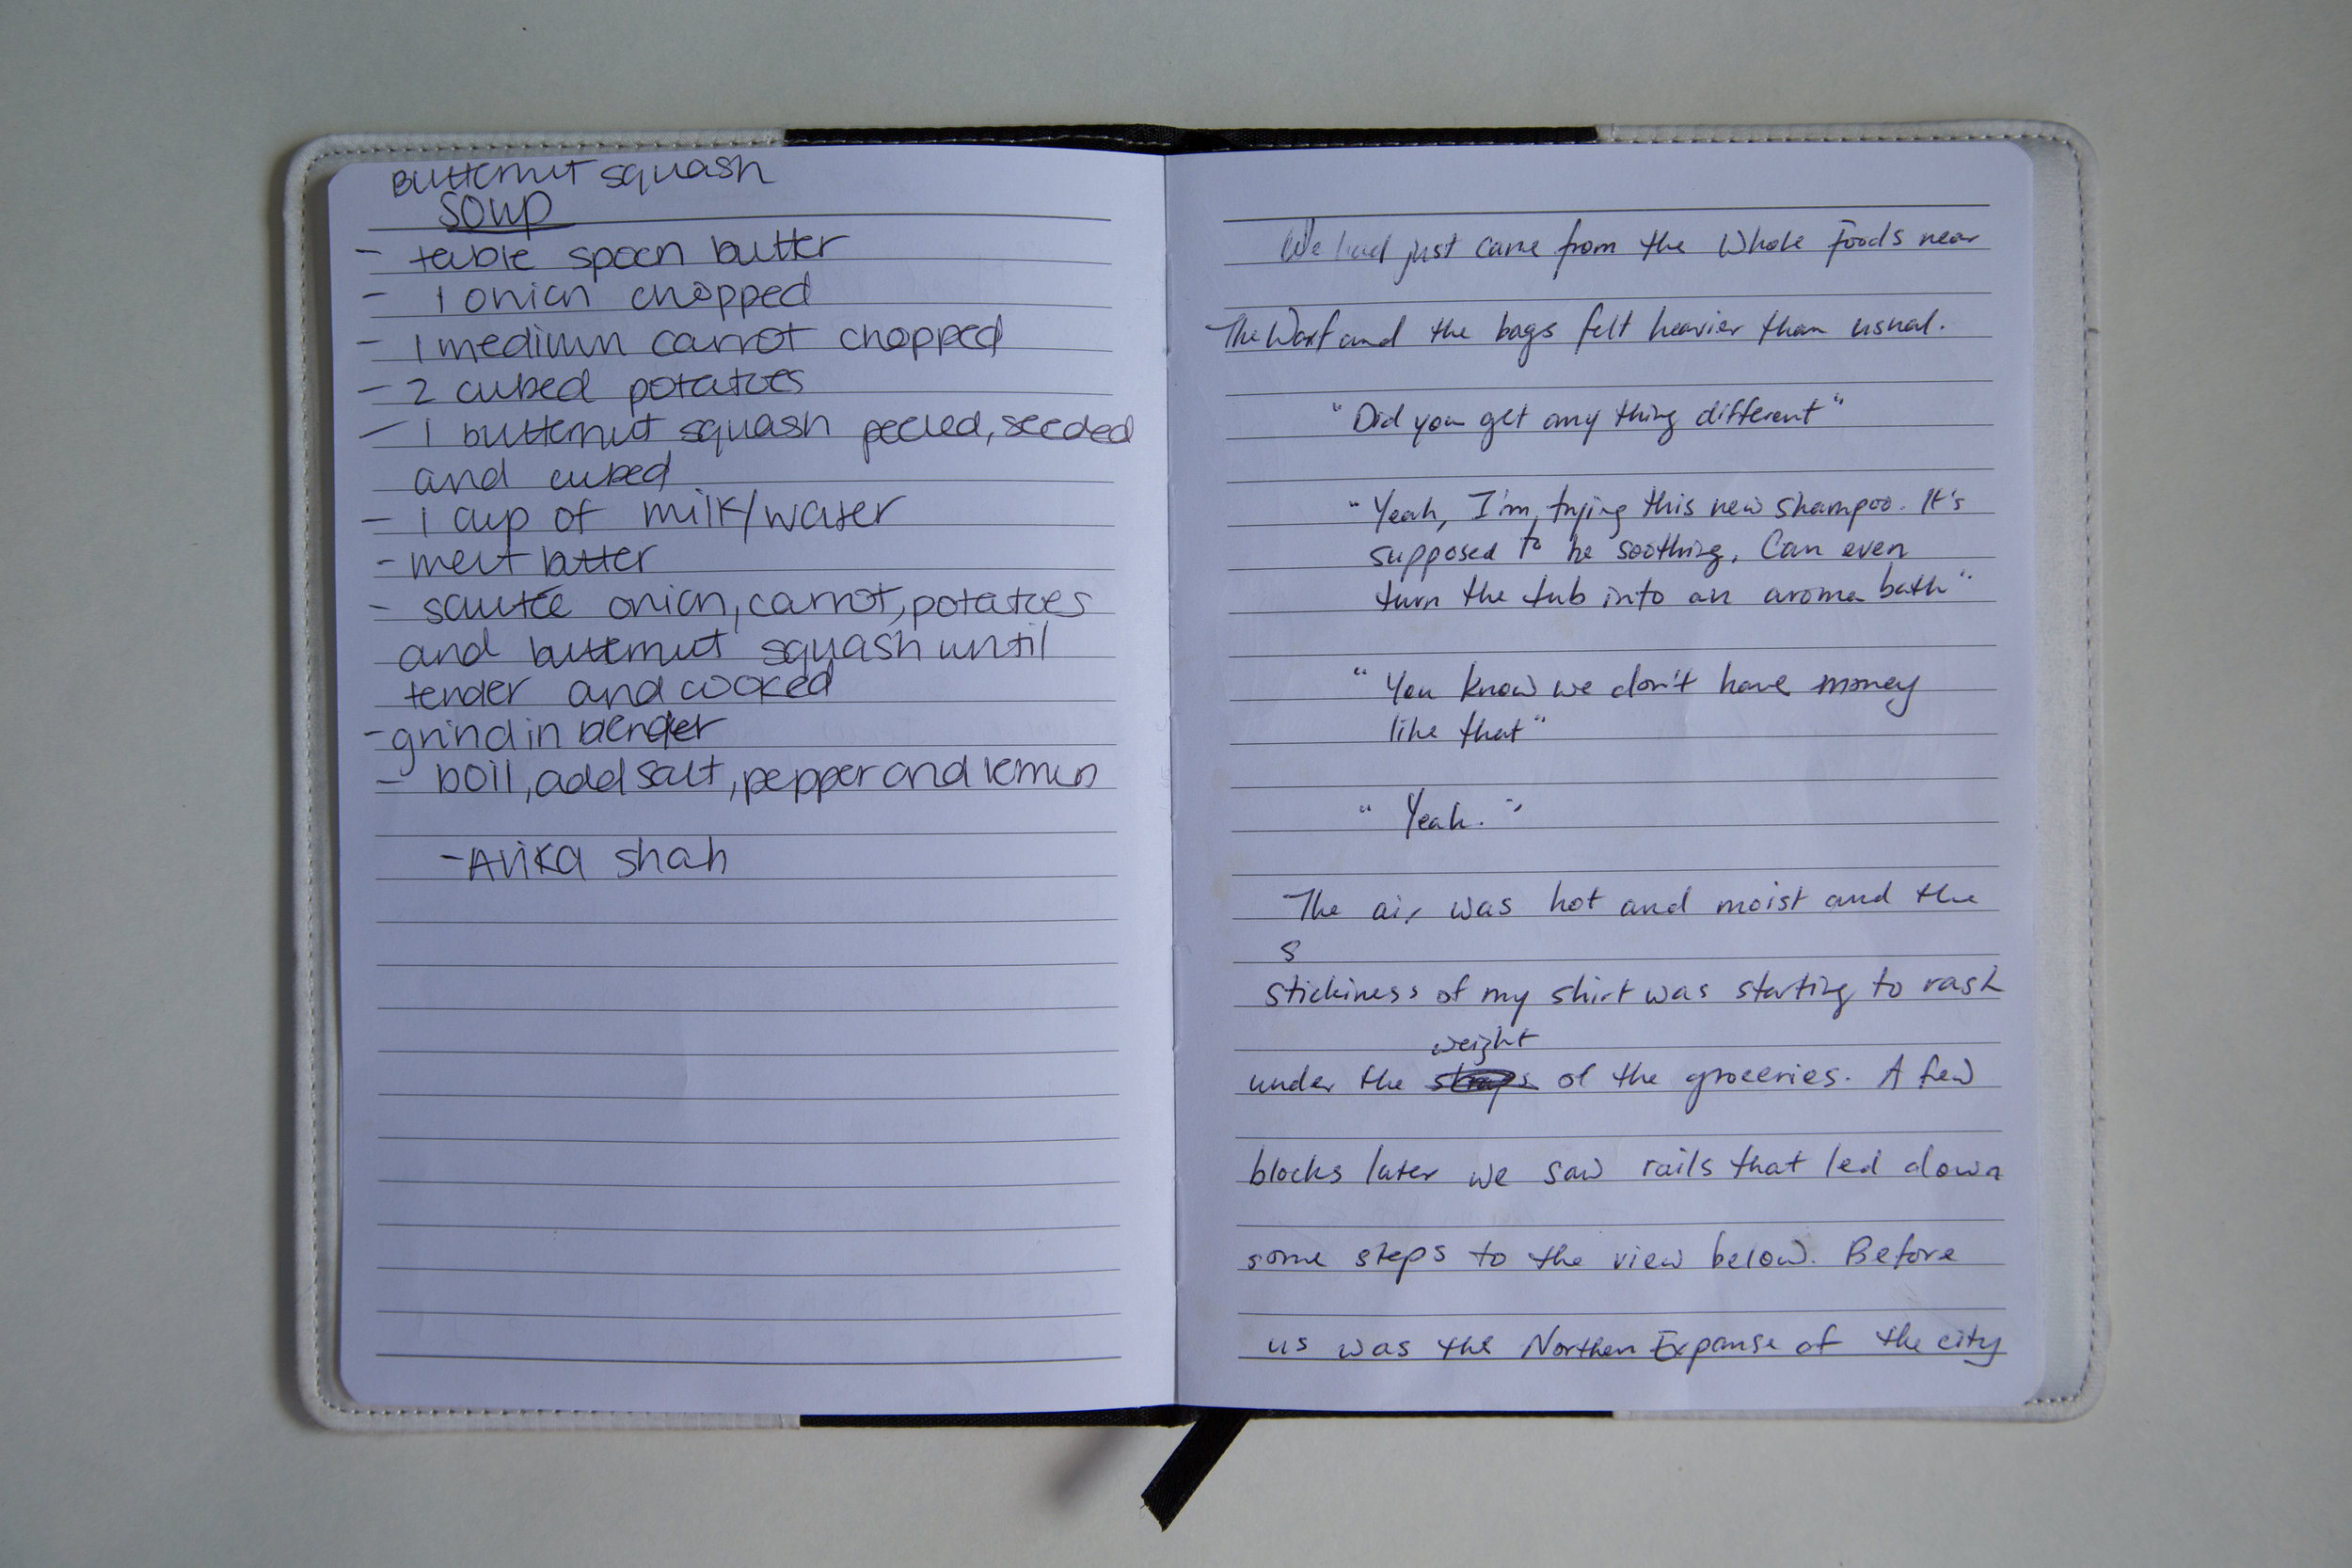 Butternut squash
soup
- table spoon butter
- 1 onion chopped
- 1 medium carrot chopped
- 2 cubed potatoes
- 1 butternut squash peeled, seeded
and cubed
- 1 cup of milk/water
- melt butter
- sautée onion, carrot, potatoes
and butternut squash until
tender and cooked
- grind in blender
- boil, add salt, pepper and lemon
- Avika Shah
We had just came from the Whole Foods near
The Warf and the bags felt heavier than usual.
"Did you get any thing different"
"Yeah, I'm trying this new shampoo. It's
supposed to be soothing. Can even
turn the tub into an aroma bath"
"You know we don't have money
like that"
"Yeah."
The air was hot and moist and the
s
stickiness of my shirt was starting to rash
weight
under the straps of the groceries. A few
blocks later we saw rails that led down
some steps to the view below. Before
us was the Northen Expanse of the city